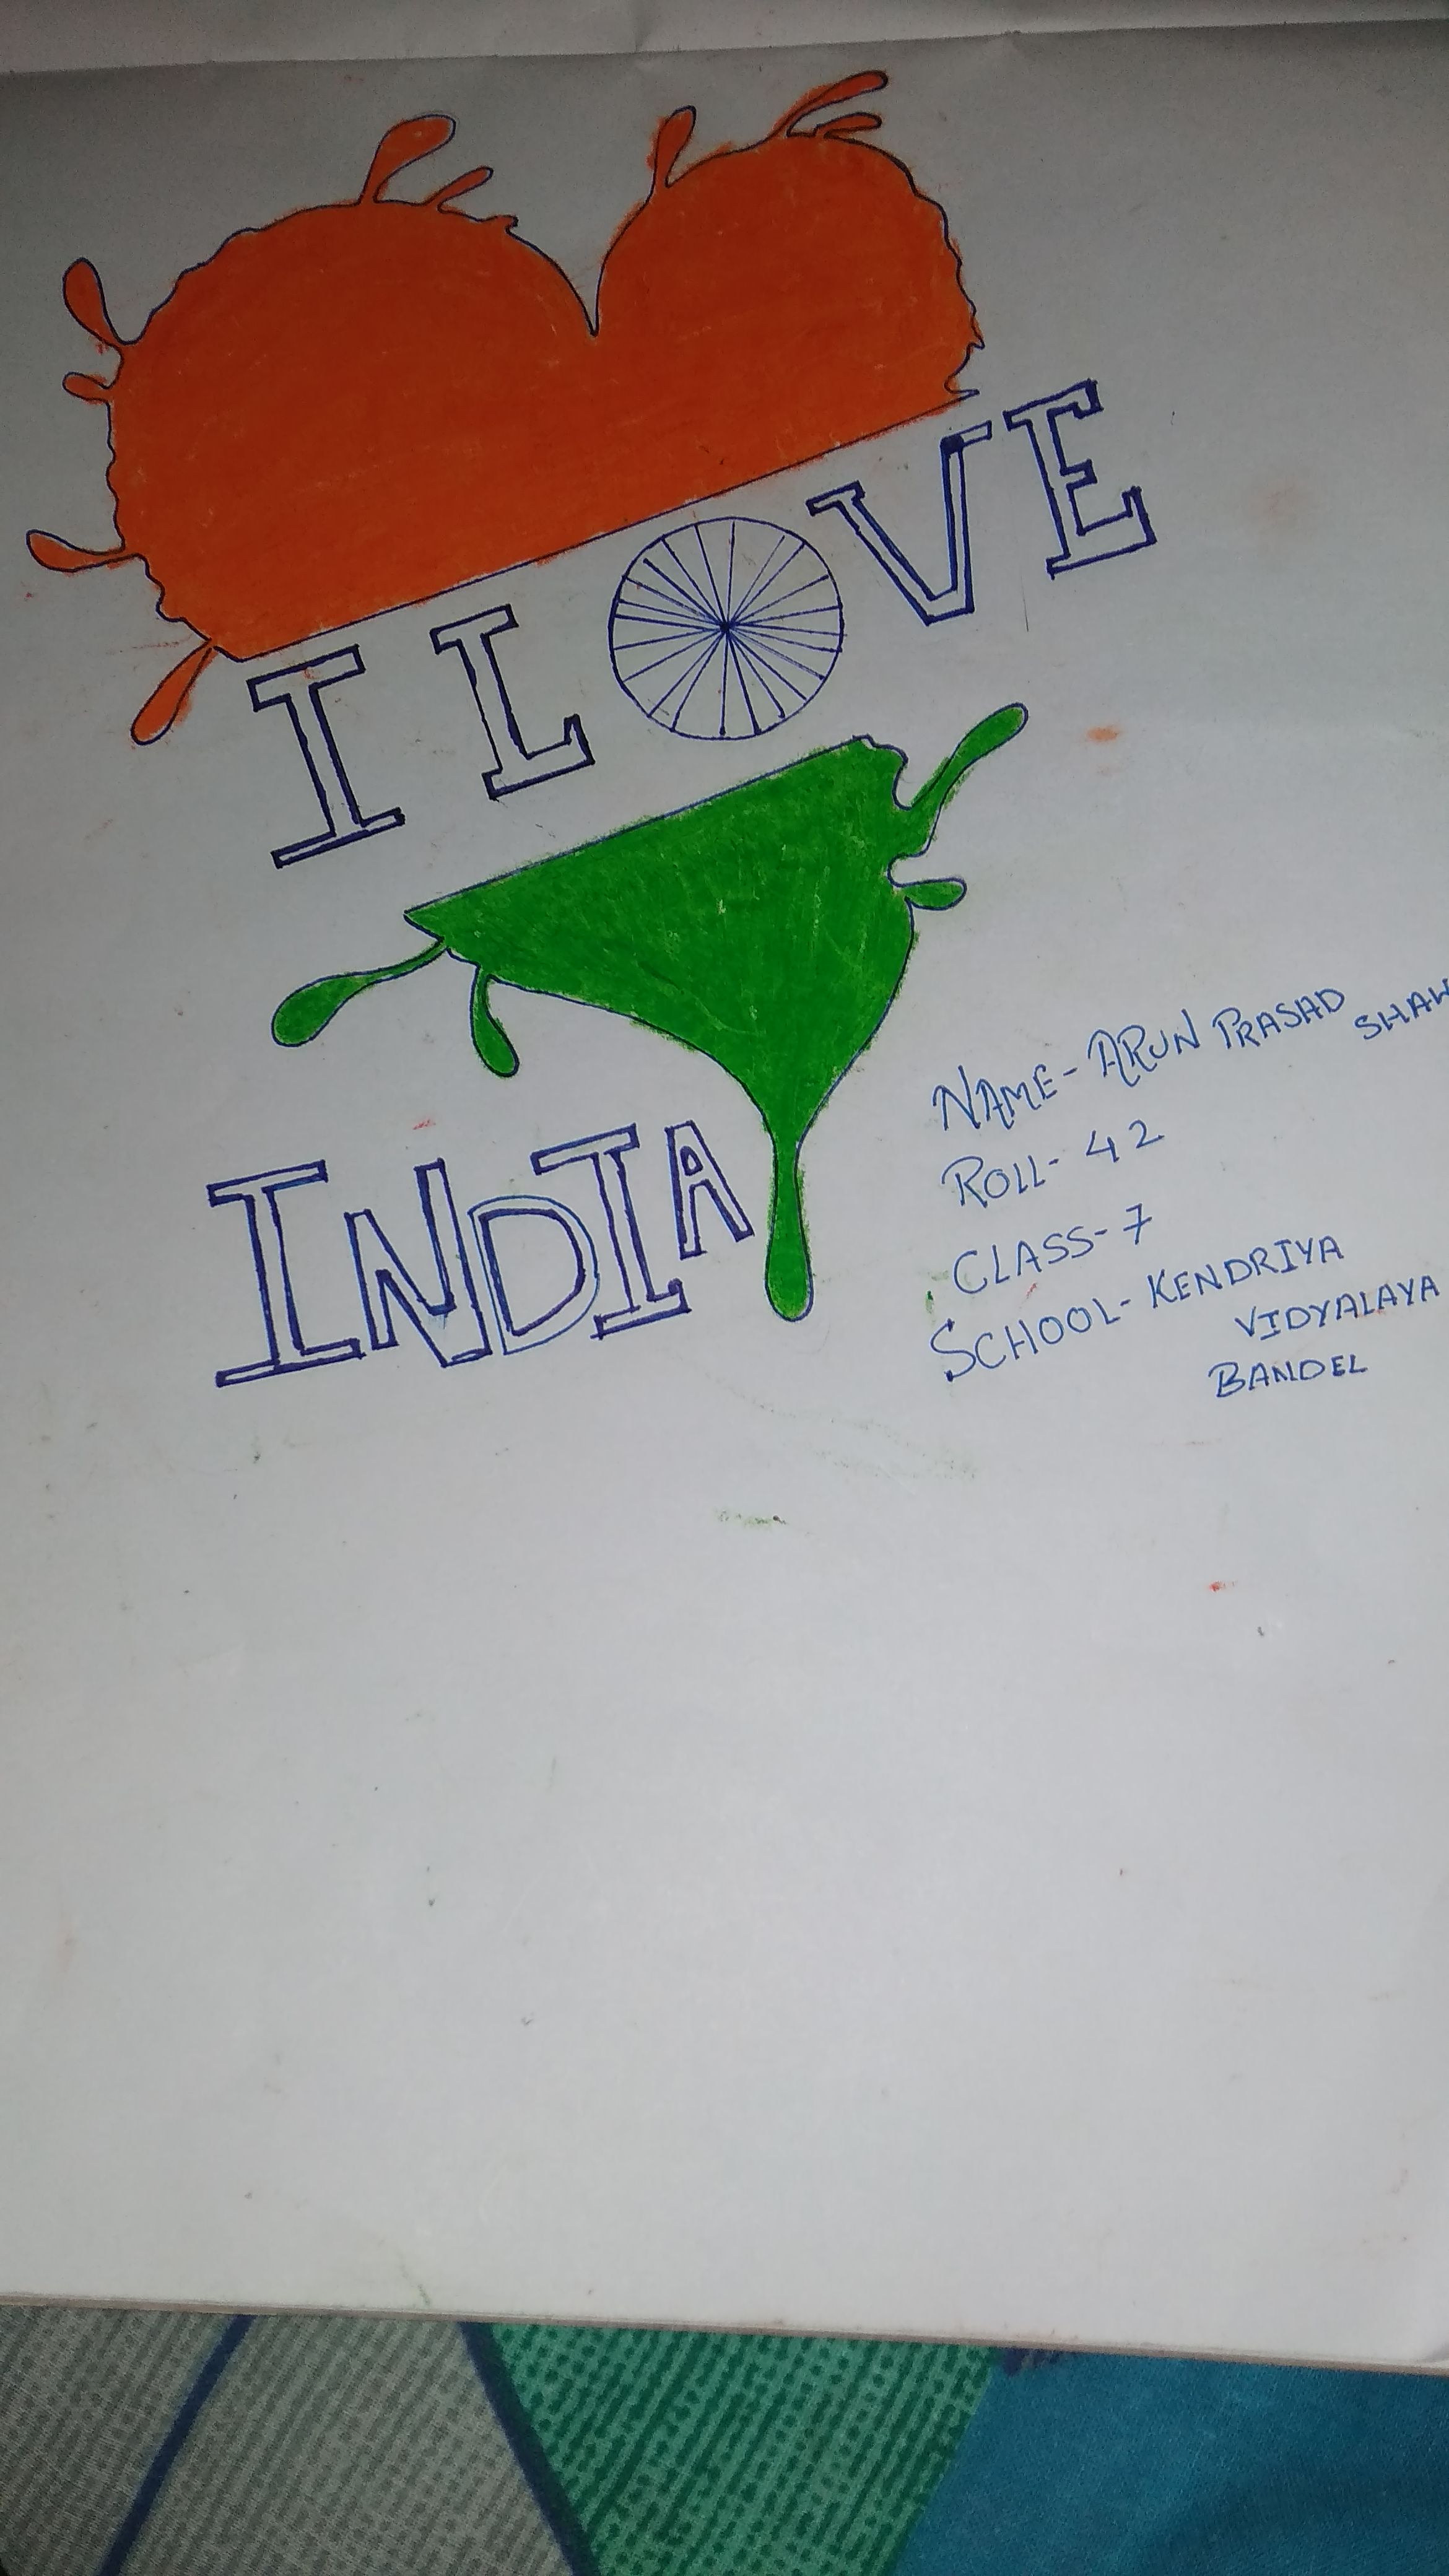 I LOVE
INDIA
NAME- ARUN PRASAD SHAW
ROLL- 42
CLASS- 7
SCHOOL- KENDRIYA
VIDYALAYA
BANDEL